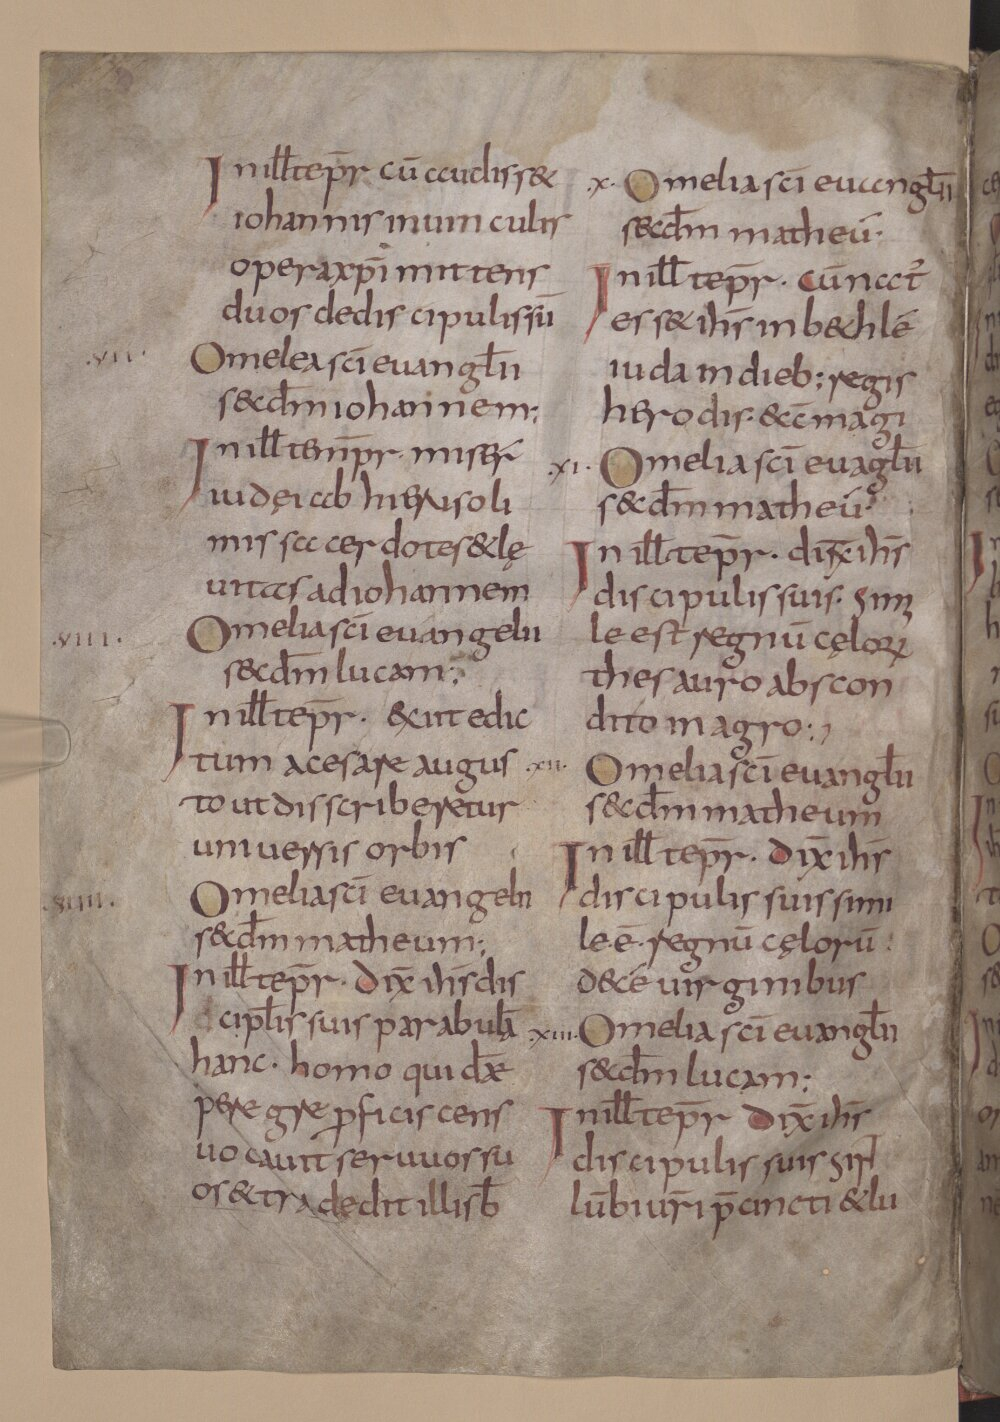 In ill̄ tep̄r cū audiss&
iohannis inuinculis
opera xp̄i mittens
duos dediscipulissuī
.vii. Omelea sc̄i euangl̄ii
s&cd̄m iohannem;
In ill̄ tem̄pr. miser̄
iudęi ab hierusoli
mis sacerdotes & lę
uittas ad iohannem
.viii. Omelia sc̄i euangelii
s&cd̄m lucam;
In ill̄ tep̄r. exiit edic
tum acesare augus
to ut disscriberetur
uniuersis orbis
.viiii. Omelia sc̄i euangelii
s&cd̄m matheum;
In ill̄ tep̄r. dix̄ ih̄s dis
cipl̄is suis parabulā
hanc. homo qui dā
peregre ꝓficiscens
uocauit seruuos su
os & tradedit illis b̄
.x. Omelia sc̄i euangl̄ii
s&cd̄m matheū.
In ill̄ tep̄r. cū nat᷒
ess& ih̄s in b&hlē
iuda in dieb; regis
herodis. &cē magi
.xi. Omelia sc̄i euagl̄ii
s&cd̄m matheū.
In ill̄ tep̄r. dix̄ ih̄s
discipulis suis. simi
le est regnū cęloꝝ
thesauro abscon
dito in agro;
.xii. Omelia sc̄i euangl̄ii
s&cd̄m matheum
In ill̄ tep̄r. dix̄ ih̄s
discipulis suis simi
le ē. regnū cęlorū.
decē uirginibus
.xiii. Omelia sc̄i euangl̄ii
s&cd̄m lucam;
In ill̄ tep̄r dix̄ ih̄s
discipulis suis sint
lūbi ur̄i p̄cincti & lu